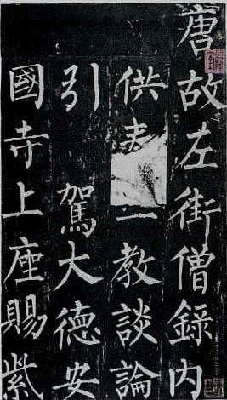 唐故左街僧錄內
供教談論
引駕大德安
國寺上座賜紫